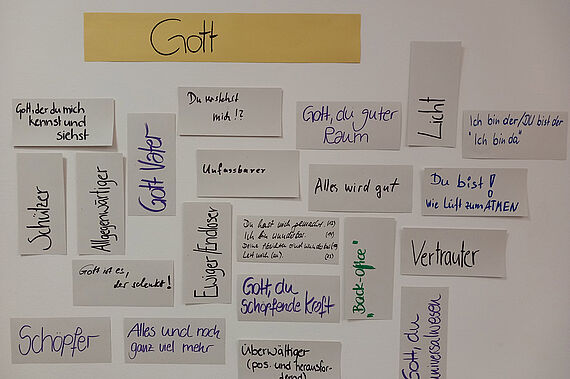 Gott
Gott, der du mich
kennst und
siehst
Du verstehst
mich!?
Gott, du guter
Raum
Licht
Ich bin der/DU bist der
"Ich bin da"
Schützer
Allgegenwärtiger
Gott Vater
Unfassbarer
Alles wird gut
Du bist!
wie Luft zum ATMEN
Gott ist es,
der schenkt!
Ewiger/Endloser
Du hast mich gemacht.
Ich bin wunderbar.
Gott, du
schöpfende Kraft
"Back-office"
Vertrauter
Schöpfer
Alles und noch
ganz viel mehr
Überwältiger
(pos. und herausfor-
dernd)
Gott, du
universalwesen